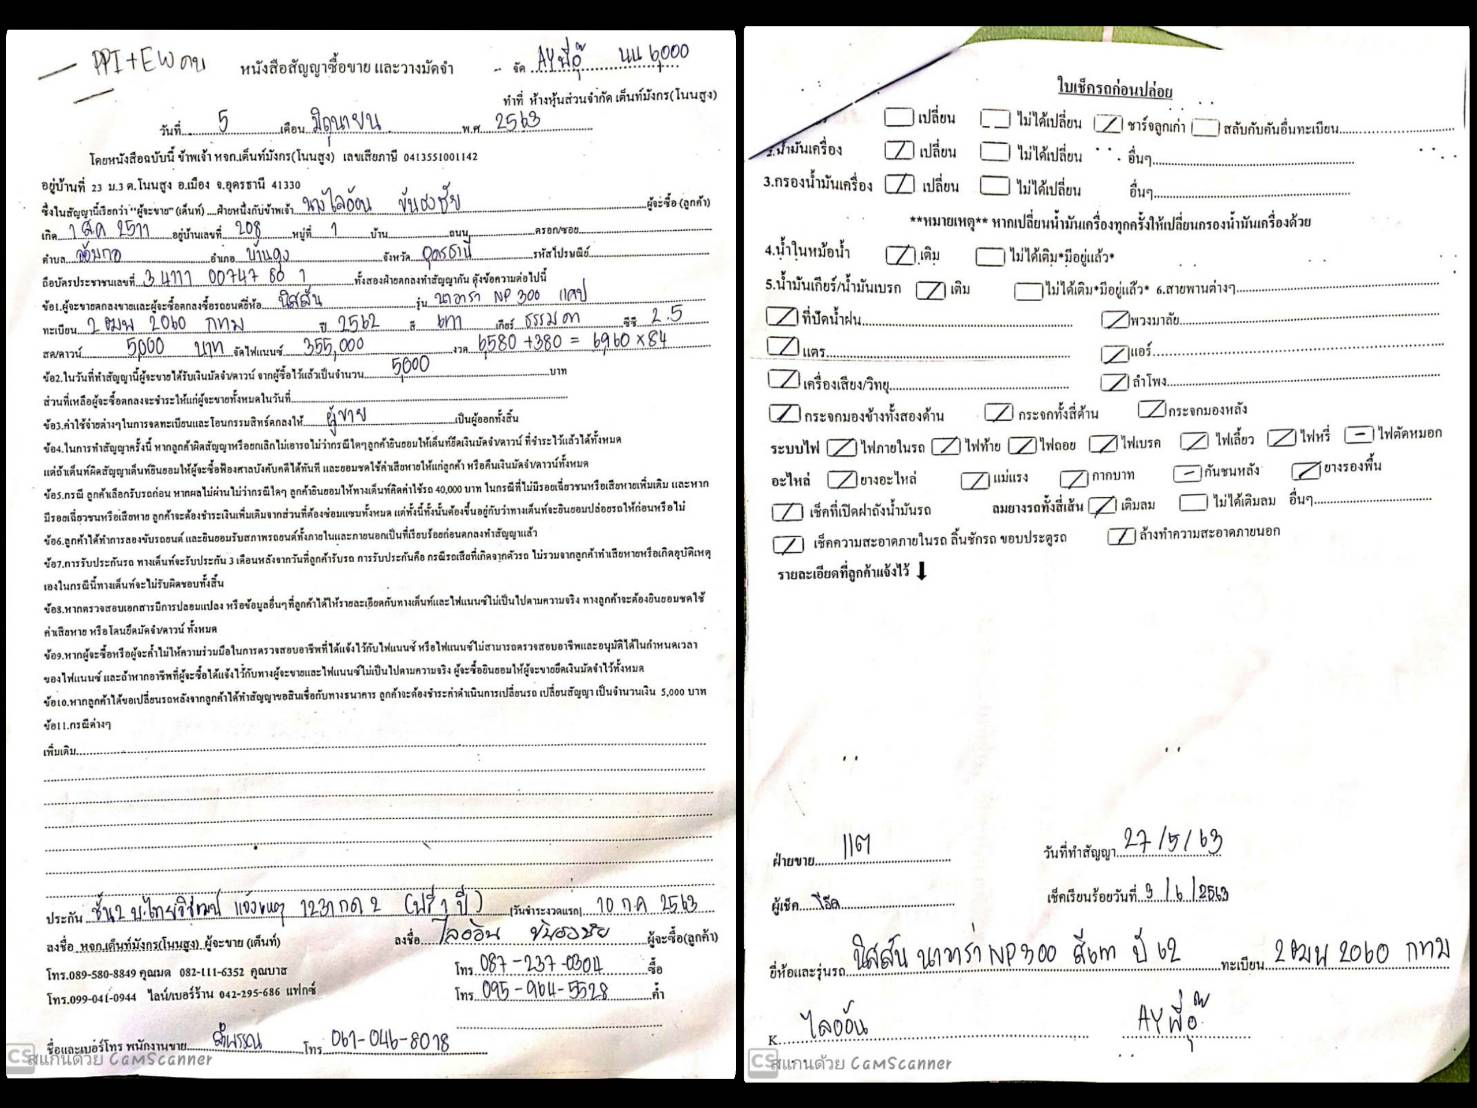 PPI+EW คบ
หนังสือสัญญาซื้อขาย และวางมัดจำ
- จัด AY พี่อู๊ นน 6,000
ทำที่ ห้างหุ้นส่วนจำกัด เต็นท์มังกร(โนนสูง)
วันที่ 5 เดือน มิถุนายน พ.ศ. 2563
โดยหนังสือฉบับนี้ ข้าพเจ้า หจก.เต็นท์มังกร(โนนสูง) เลขเสียภาษี 0413551001142
อยู่บ้านที่ 23 ม.3 ต.โนนสูง อ.เมือง จ.อุดรธานี 41330
ซึ่งในสัญญานี้เรียกว่า "ผู้จะขาย" (เต็นท์) ฝ่ายหนึ่งกับข้าพเจ้า นางไลออน ขันธงชัย ผู้จะซื้อ (ลูกค้า)
เกิด 1 สค 2511 อยู่บ้านเลขที่ 208 หมู่ที่ 1 บ้าน ถนน ตรอก/ซอย
ตำบล อ้อมกอ อำเภอ บ้านดุง จังหวัด อุดรธานี รหัสไปรษณีย์
ถือบัตรประชาชนเลขที่ 3 4111 00747 80 1 ทั้งสองฝ่ายตกลงทำสัญญากัน ดังข้อความต่อไปนี้
ข้อ1.ผู้จะขายตกลงขายและผู้จะซื้อตกลงซื้อรถยนต์ยี่ห้อ นิสสัน รุ่น นาวาร่า NP 300 แคป
ทะเบียน 2 ฒพ 2060 กทม ปี 2562 สี เทา เกียร์ ธรรมดา ซีซี 2.5
สด/ดาวน์ 5,000 บาท จัดไฟแนนซ์ 355,000 งวด 6,580 +380 = 6,960 x 84
ข้อ2.ในวันที่ทำสัญญานี้ผู้จะขายได้รับเงินมัดจำ/ดาวน์ จากผู้ซื้อไว้แล้วเป็นจำนวน 5,000 บาท
ส่วนที่เหลือผู้จะซื้อตกลงจะชำระให้แก่ผู้จะขายทั้งหมดในวันที่
ข้อ3.ค่าใช้จ่ายต่างๆในการจดทะเบียนและโอนกรรมสิทธิ์ตกลงให้ ผู้ขาย เป็นผู้ออกทั้งสิ้น
ข้อ4.ในการทำสัญญาครั้งนี้ หากลูกค้าผิดสัญญาหรือยกเลิกไม่เอารถไม่ว่ากรณีใดๆลูกค้ายินยอมให้เต็นท์ยึดเงินมัดจำ/ดาวน์ ที่ชำระไว้แล้วได้ทั้งหมด
แต่ถ้าเต็นท์ผิดสัญญาเต็นท์ยินยอมให้ผู้จะซื้อฟ้องศาลบังคับคดีได้ทันที และยอมชดใช้ค่าเสียหายให้แก่ลูกค้า หรือคืนเงินมัดจำ/ดาวน์ทั้งหมด
ข้อ5.กรณี ลูกค้าเลือกรับรถก่อน หากผลไม่ผ่านไม่ว่ากรณีใดๆ ลูกค้ายินยอมให้ทางเต็นท์คิดค่าใช้รถ 40,000 บาท ในกรณีที่ไม่มีรอยเฉี่ยวชนหรือเสียหายเพิ่มเติม และหาก
มีรอยเฉี่ยวชนหรือเสียหาย ลูกค้าจะต้องชำระเงินเพิ่มเติมจากส่วนที่ต้องซ่อมแซมทั้งหมด แต่ทั้งนี้ทั้งนั้นต้องขึ้นอยู่กับว่าทางเต็นท์จะยินยอมปล่อยรถให้ก่อนหรือไม่
ข้อ6.ลูกค้าได้ทำการลองขับรถยนต์ และยินยอมรับสภาพรถยนต์ทั้งภายในและภายนอกเป็นที่เรียบร้อยก่อนตกลงทำสัญญาแล้ว
ข้อ7.การรับประกันรถ ทางเต็นท์จะรับประกัน 3 เดือนหลังจากวันที่ลูกค้ารับรถ การรับประกันคือ กรณีรถเสียที่เกิดจากตัวรถ ไม่รวมจากลูกค้าทำเสียหายหรือเกิดอุบัติเหตุ
เองในกรณีนี้ทางเต็นท์จะไม่รับผิดชอบทั้งสิ้น
ข้อ8.หากตรวจสอบเอกสารมีการปลอมแปลง หรือข้อมูลอื่นๆที่ลูกค้าได้ให้รายละเอียดกับทางเต็นท์และไฟแนนซ์ไม่เป็นไปตามความจริง ทางลูกค้าจะต้องยินยอมชดใช้
ค่าเสียหาย หรือโดนยึดมัดจำ/ดาวน์ ทั้งหมด
ข้อ9.หากผู้จะซื้อหรือผู้จะค้ำไม่ให้ความร่วมมือในการตรวจสอบอาชีพที่ได้แจ้งไว้กับไฟแนนซ์ หรือไฟแนนซ์ไม่สามารถตรวจสอบอาชีพและอนุมัติได้ในกำหนดเวลา
ของไฟแนนซ์ และถ้าหากอาชีพที่ผู้จะซื้อได้แจ้งไว้กับทางผู้จะขายและไฟแนนซ์ไม่เป็นไปตามความจริง ผู้จะซื้อยินยอมให้ผู้จะขายยึดเงินมัดจำไว้ทั้งหมด
ข้อ10.หากลูกค้าได้ขอเปลี่ยนรถหลังจากลูกค้าได้ทำสัญญาขอสินเชื่อกับทางธนาคาร ลูกค้าจะต้องชำระค่าดำเนินการเปลี่ยนรถ เปลี่ยนสัญญา เป็นจำนวนเงิน 5,000 บาท
ข้อ11.กรณีต่างๆ
เพิ่มเติม
ประกัน ชั้น2 บ.ไทยวิวัฒน์ แจ้งเหตุ 1231 กด 2 (ฟรี 1 ปี) (วันชำระงวดแรก) 10 ก.ค 2563
ลงชื่อ หจก.เต็นท์มังกร(โนนสูง) ผู้จะขาย (เต็นท์) ลงชื่อ ไลออน ขันธงชัย ผู้จะซื้อ(ลูกค้า)
โทร.089-580-8849 คุณมด 082-111-6352 คุณบาส โทร. 087-237-0304 ซื้อ
โทร.099-041-0944 ไลน์/เบอร์ร้าน 042-295-686 แฟกซ์ โทร. 095-964-5528 ค้ำ
ชื่อและเบอร์โทร พนักงานขาย ลำพรรณ โทร 061-046-8018
CS สแกนด้วย CamScanner
ใบเช็กรถก่อนปล่อย
เปลี่ยน ไม่ได้เปลี่ยน ชาร์จลูกเก่า สลับกับคันอื่นทะเบียน
2.น้ำมันเครื่อง เปลี่ยน ไม่ได้เปลี่ยน อื่นๆ
3.กรองน้ำมันเครื่อง เปลี่ยน ไม่ได้เปลี่ยน อื่นๆ
**หมายเหตุ** หากเปลี่ยนน้ำมันเครื่องทุกครั้งให้เปลี่ยนกรองน้ำมันเครื่องด้วย
4.น้ำในหม้อน้ำ เติม ไม่ได้เติม*มีอยู่แล้ว*
5.น้ำมันเกียร์/น้ำมันเบรก เติม ไม่ได้เติม*มีอยู่แล้ว* 6.สายพานต่างๆ
ที่ปัดน้ำฝน พวงมาลัย
แตร แอร์
เครื่องเสียง/วิทยุ ลำโพง
กระจกมองข้างทั้งสองด้าน กระจกทั้งสี่ด้าน กระจกมองหลัง
ระบบไฟ ไฟภายในรถ ไฟท้าย ไฟถอย ไฟเบรค ไฟเลี้ยว ไฟหรี่ ไฟตัดหมอก
อะไหล่ ยางอะไหล่ แม่แรง กากบาท กันชนหลัง ยางรองพื้น
เช็คที่เปิดฝาถังน้ำมันรถ ลมยางรถทั้งสี่เส้น เติมลม ไม่ได้เติมลม อื่นๆ
เช็คความสะอาดภายในรถ ลิ้นชักรถ ขอบประตูรถ ล้างทำความสะอาดภายนอก
รายละเอียดที่ลูกค้าแจ้งไว้ ↓
ฝ่ายขาย แต วันที่ทำสัญญา 27/5/63
ผู้เช็ค เช็คเรียบร้อยวันที่ 3/6/2563
ยี่ห้อและรุ่นรถ นิสสัน นาวาร่า NP 300 สีเทา ปี 62 ทะเบียน 2 ฒพ 2060 กทม
K ไลออน AY พี่อู๊
CS สแกนด้วย CamScanner